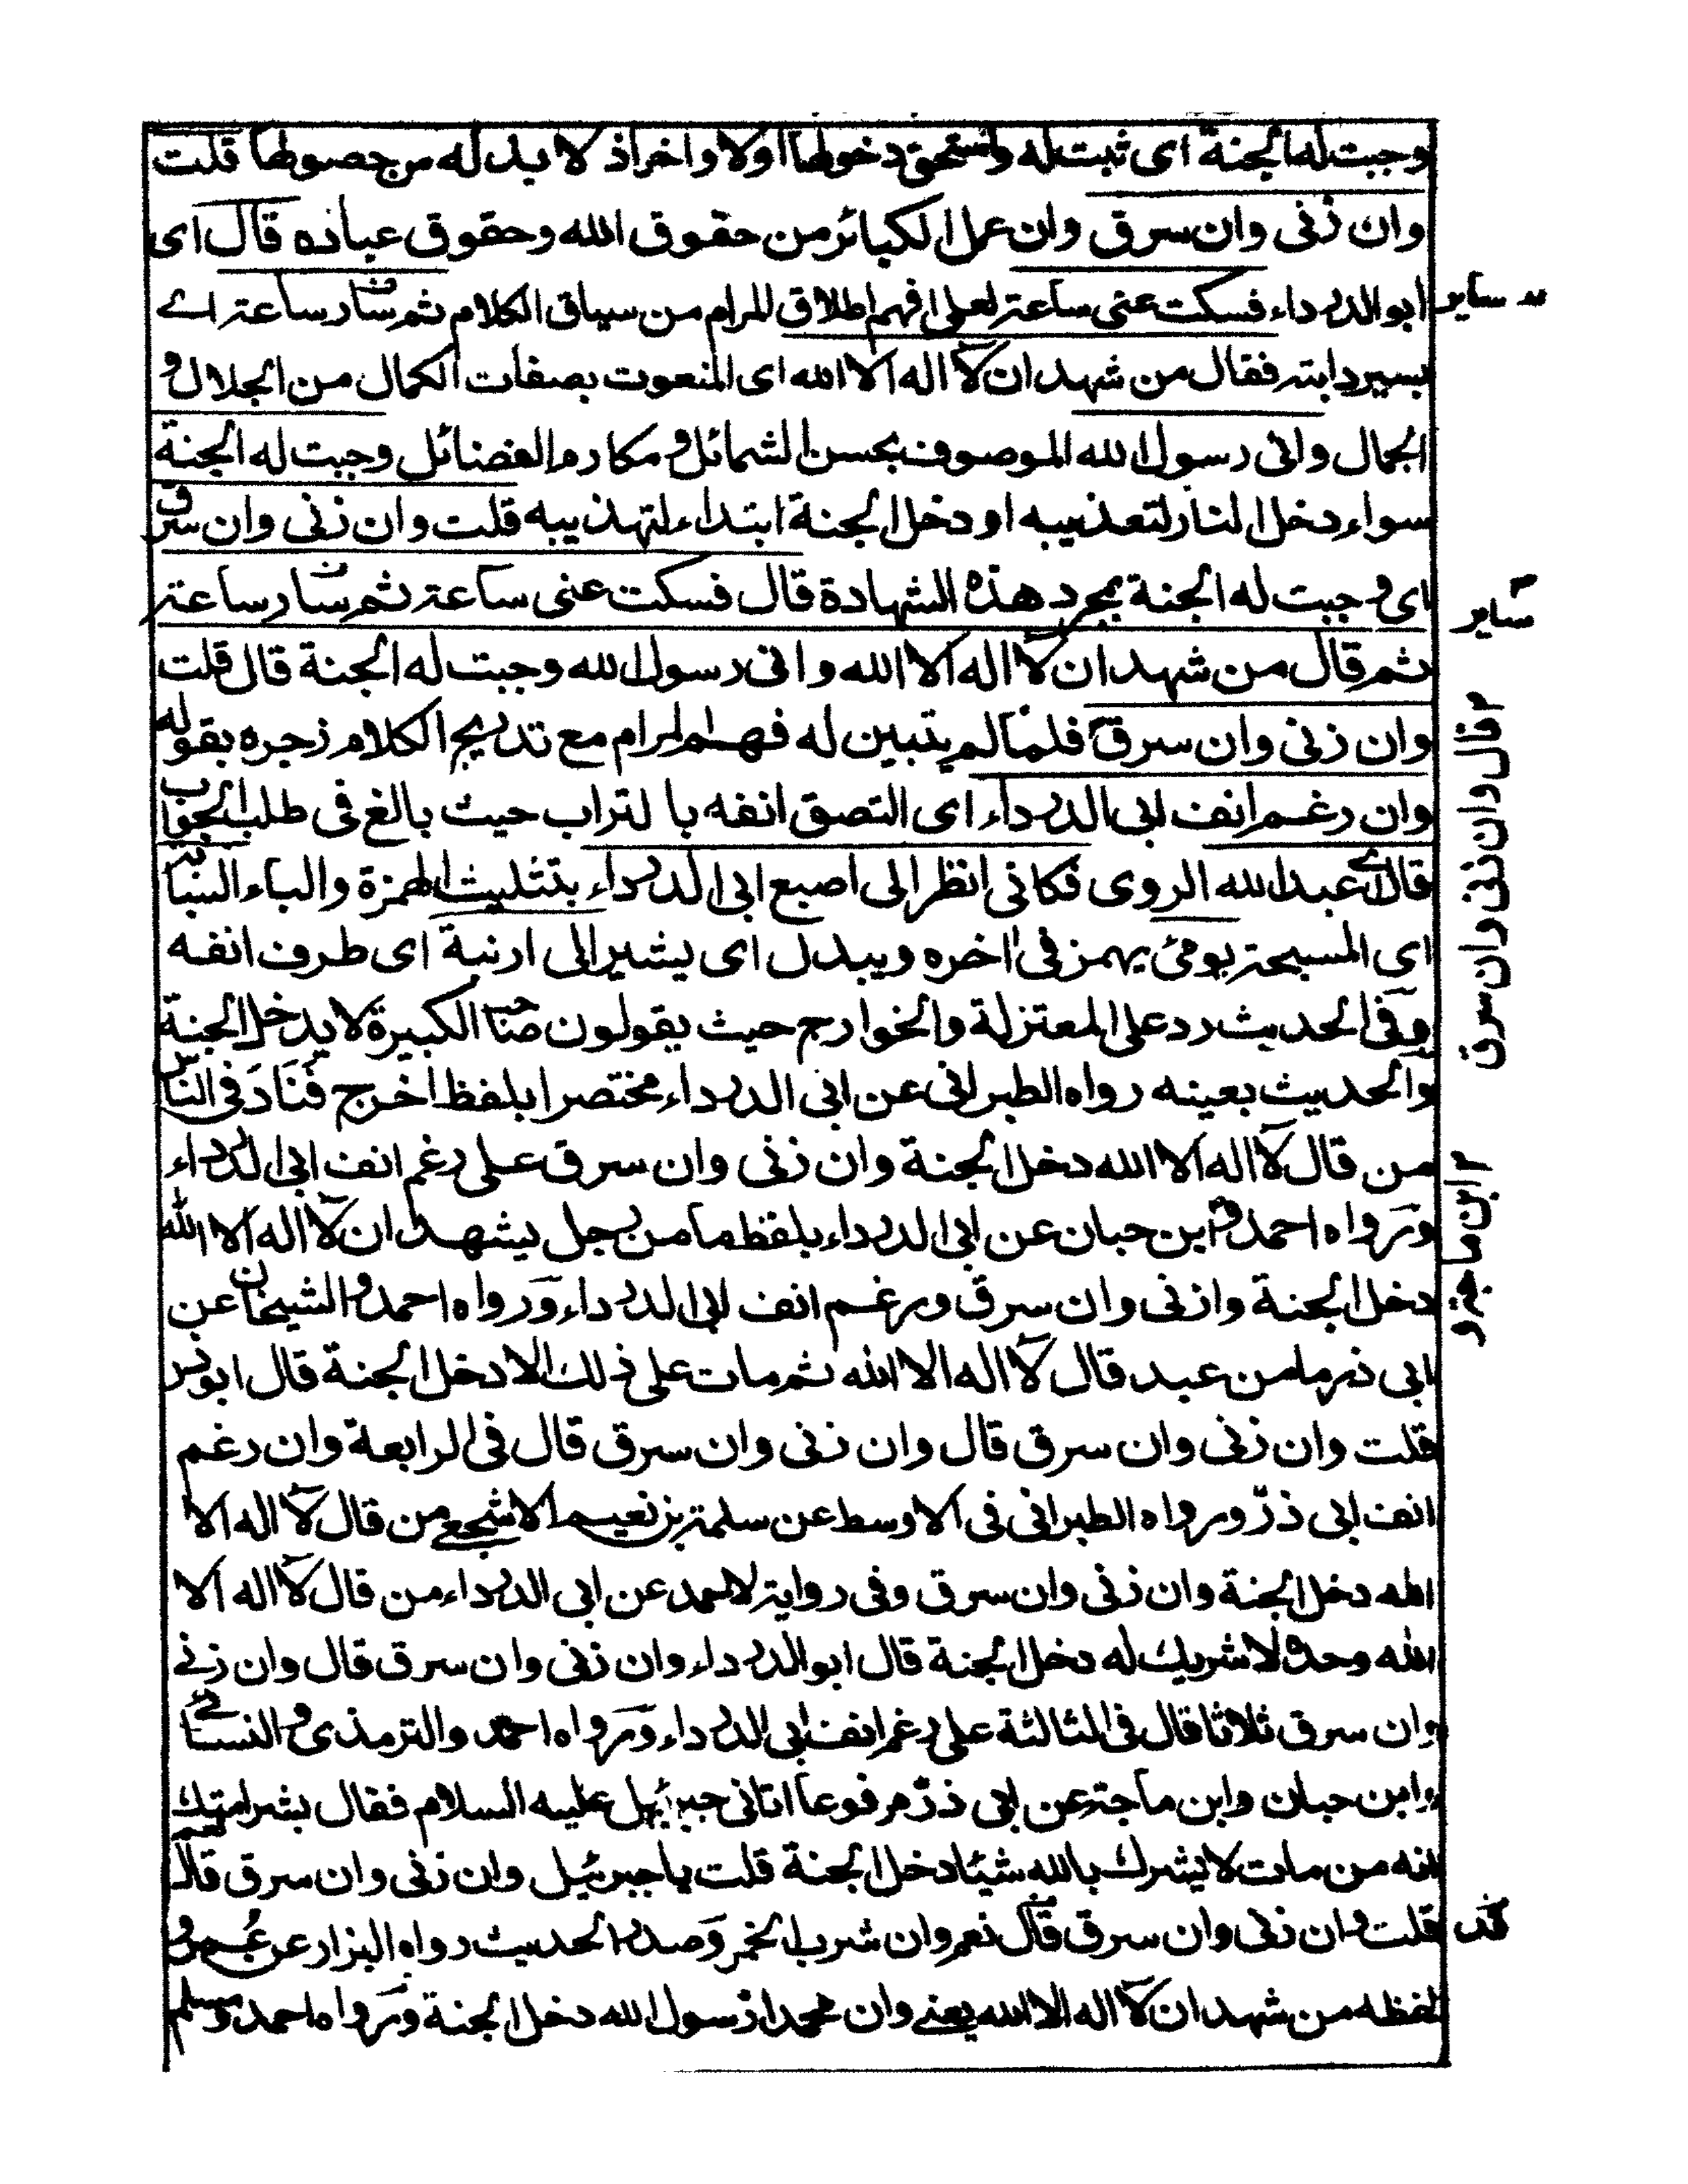 وجبت له الجنة اى ثبت له واستحق دخولها اولا واخرا اذ لا بد له من حصولها قلت
وان زنى وان سرق وان عمل الكبائر من حقوق الله وحقوق عباده قال اى
ابو الدرداء فسكت عنى ساعة لعلى افهم اطلاق المرام من سياق الكلام ثم سار ساعة اے
بسير دابته فقال من شهد ان لا اله الا الله اى المنعوت بصفات الكمال من الجلال و
الجمال وانى رسول الله الموصوف بحسن الشمائل ومكارم الفضائل وجبت له الجنة
سواء دخل النار لتعذيبه او دخل الجنة ابتداء لتهذيبه قلت وان زنى وان سرق
اى وجبت له الجنة بمجرد هذه الشهادة قال فسكت عنى ساعة ثم سار ساعة
ثم قال من شهد ان لا اله الا الله وانى رسول الله وجبت له الجنة قال قلت
وان زنى وان سرق فلما لم يتبين له فهم المرام مع تدريج الكلام زجره بقوله
وان رغم انف ابى الدرداء اى التصق انفه بالتراب حيث بالغ فى طلب الجواب
قال اے عبد الله الروى فكانى انظر الى اصبع ابى الدرداء بتثليث الهمزة والباء السبابة
اى المسبحة يومئ يهمز فى اخره ويبدل اى يشير الى ارنبة اى طرف انفه
وفى الحديث رد على المعتزلة والخوارج حيث يقولون صاحب الكبيرة لا يدخل الجنة
والحديث بعينه رواه الطبرانى عن ابى الدرداء مختصرا بلفظ اخرج فناد فى الناس
من قال لا اله الا الله دخل الجنة وان زنى وان سرق على رغم انف ابى الدرداء
ورواه احمد و ابن حبان عن ابى الدرداء بلفظ ما من رجل يشهد ان لا اله الا الله
دخل الجنة وان زنى وان سرق ورغم انف ابى الدرداء ورواه احمد والشيخان عن
ابى ذر ما من عبد قال لا اله الا الله ثم مات على ذلك الا دخل الجنة قال ابو ذر
قلت وان زنى وان سرق قال وان زنى وان سرق قال فى الرابعة وان رغم
انف ابى ذر ورواه الطبرانى فى الاوسط عن سلمة بن نعيم الاشجعے من قال لا اله الا
الله دخل الجنة وان زنى وان سرق وفى رواية لاحمد عن ابى الدرداء من قال لا اله الا
الله وحده لا شريك له دخل الجنة قال ابو الدرداء وان زنى وان سرق قال وان زنے
وان سرق ثلاثا قال فى الثالثة على رغم انف ابى الدرداء ورواه احمد والترمذى والنسائے
وابن حبان وابن ماجة عن ابى ذر مرفوعا اتانى جبرئيل عليه السلام فقال بشر امتك
انه من مات لا يشرك بالله شيئا دخل الجنة قلت يا جبرئيل وان زنى وان سرق قال نعم
قلت وان زنى وان سرق قال نعم وان شرب الخمر وصدر الحديث رواه البزار عن عمر و
لفظه من شهد ان لا اله الا الله يعنے وان محمدا رسول الله دخل الجنة ورواه احمد ومسلم
ساير
ساير
قال وان زنى وان سرق
ابن ماجة و